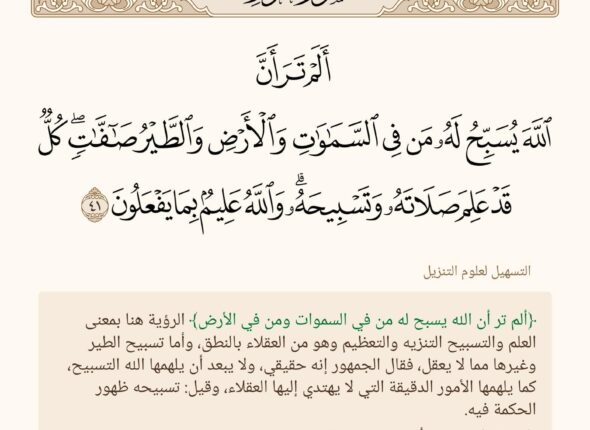 أَلَمۡ تَرَ أَنَّ
ٱللَّهَ يُسَبِّحُ لَهُۥ مَن فِي ٱلسَّمَٰوَٰتِ وَٱلۡأَرۡضِ وَٱلطَّيۡرُ صَٰٓفَّٰتٖۖ كُلّٞ
قَدۡ عَلِمَ صَلَاتَهُۥ وَتَسۡبِيحَهُۥۗ وَٱللَّهُ عَلِيمُۢ بِمَا يَفۡعَلُونَ ٤١
التسهيل لعلوم التنزيل
﴿ألم تر أن الله يسبح له من في السموات ومن في الأرض﴾ الرؤية هنا بمعنى
العلم والتسبيح التنزيه والتعظيم وهو من العقلاء بالنطق، وأما تسبيح الطير
وغيرها مما لا يعقل، فقال الجمهور إنه حقيقي، ولا يبعد أن يلهمها الله التسبيح،
كما يلهمها الأمور الدقيقة التي لا يهتدي إليها العقلاء، وقيل: تسبيحه ظهور
الحكمة فيه.